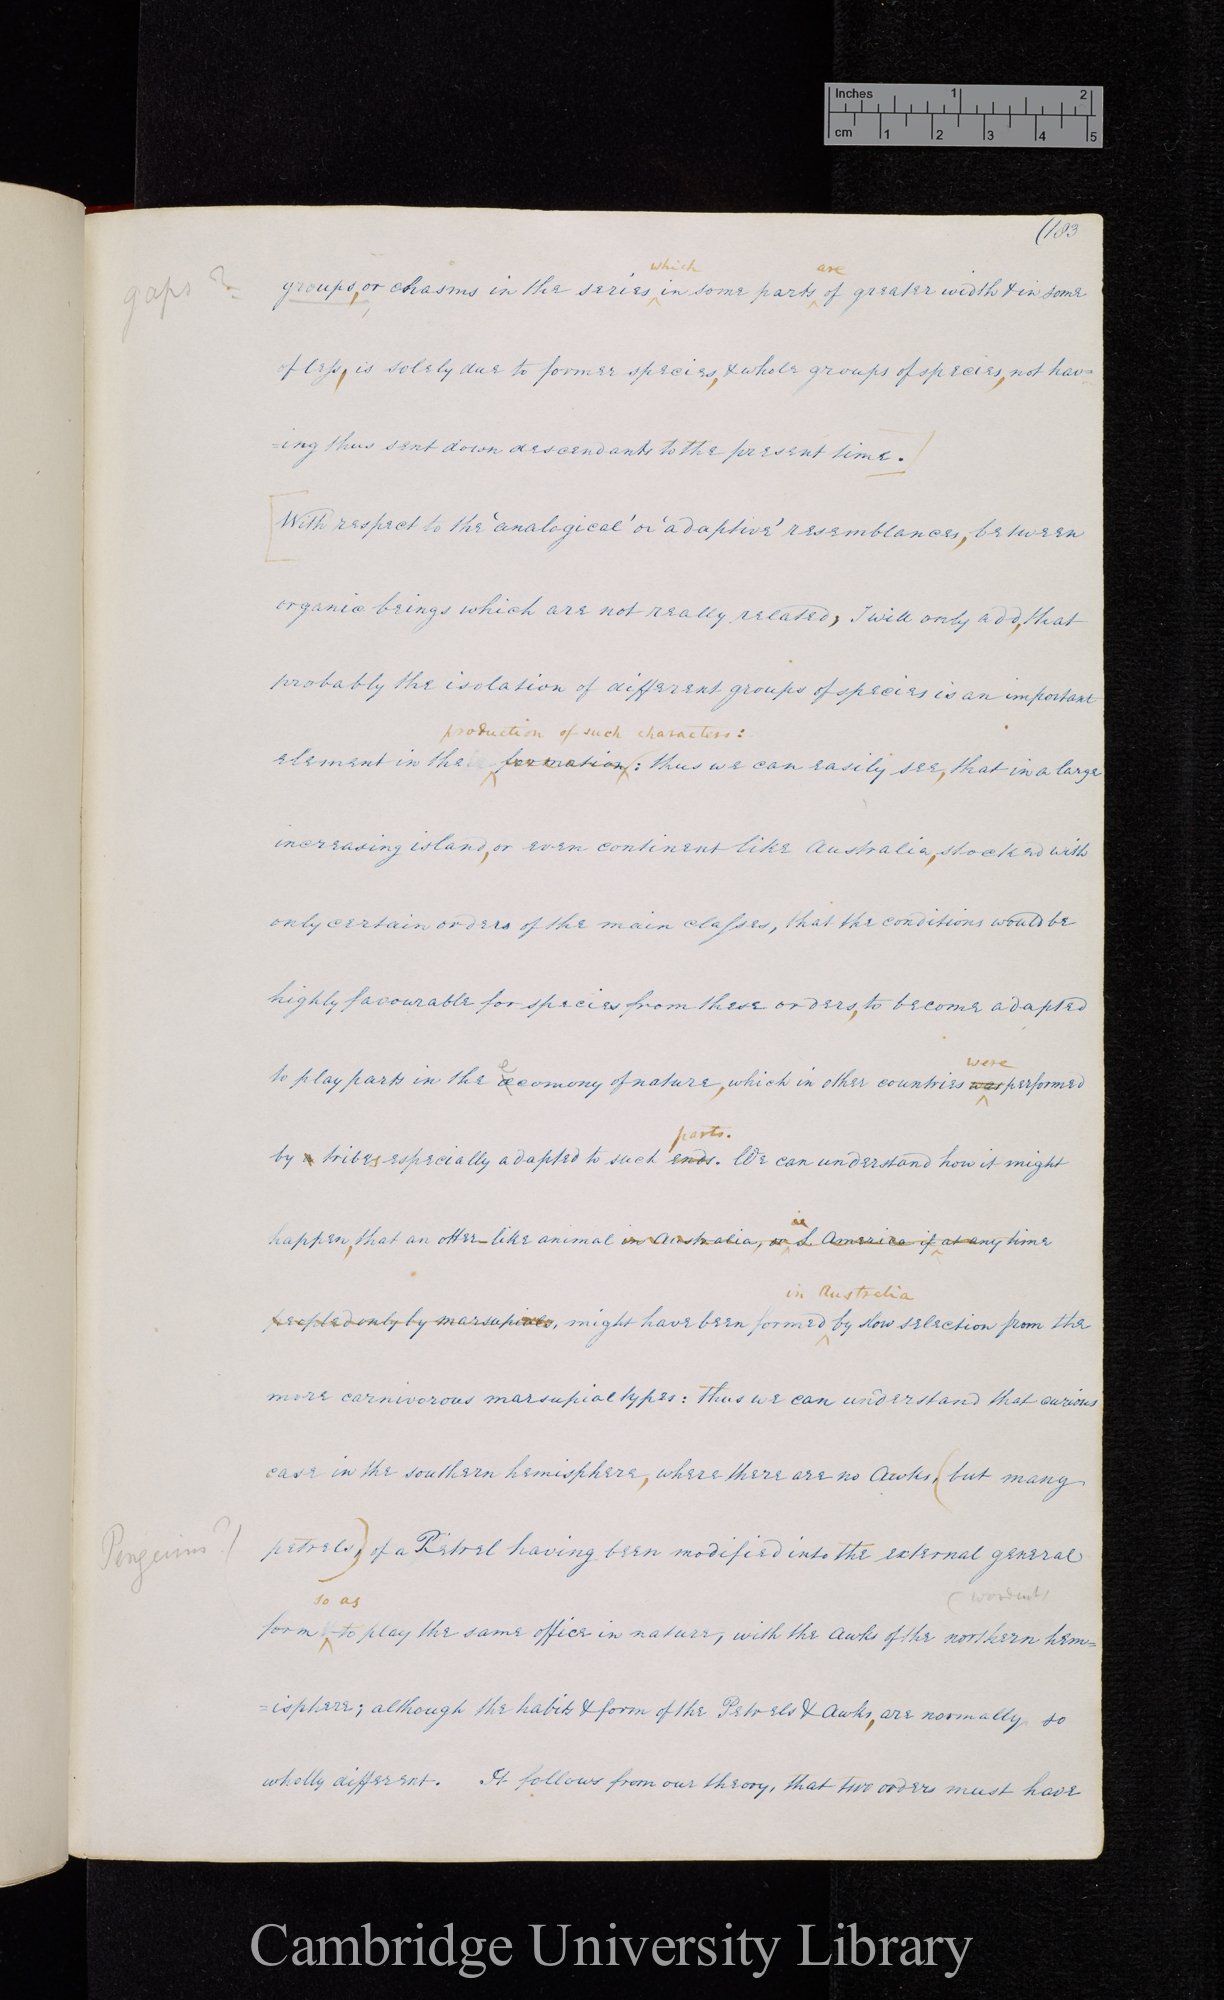 Inches 1 2
cm 1 2 3 4 5
(183
which are
gaps?
groups, or chasms in the series in some parts of greater width & in some
of less, is solely due to former species, & whole groups of species, not hav=
=ing thus sent down descendants to the present time.]
[With respect to the 'analogical' or 'adaptive' resemblances, between
organic beings which are not really related, I will only add, that
probably the isolation of different groups of species is an important
production of such characters:
element in the formation: thus we can easily see, that in a large
increasing island, or even continent like Australia, stocked with
only certain orders of the main classes, that the conditions would be
highly favourable for species from these orders, to become adapted
e were
to play parts in the œconomy of nature, which in other countries was performed
parts.
by a tribes especially adapted to such ends. We can understand how it might
in
happen, that an otter-like animal in Australia, or S. America if at any time
in Australia
peopled only by marsupials, might have been formed by slow selection from the
more carnivorous marsupial types: thus we can understand that curious
case in the southern hemisphere, where there are no Awks, (but many
Penguins?/
petrels,) of a Petrel having been modified into the external general
so as
form to play the same office in nature, with the Awks of the northern hem=
=isphere; although the habits & form of the Petrels & Awks, are normally so
wholly different. It follows from our theory, that two orders must have
Cambridge University Library